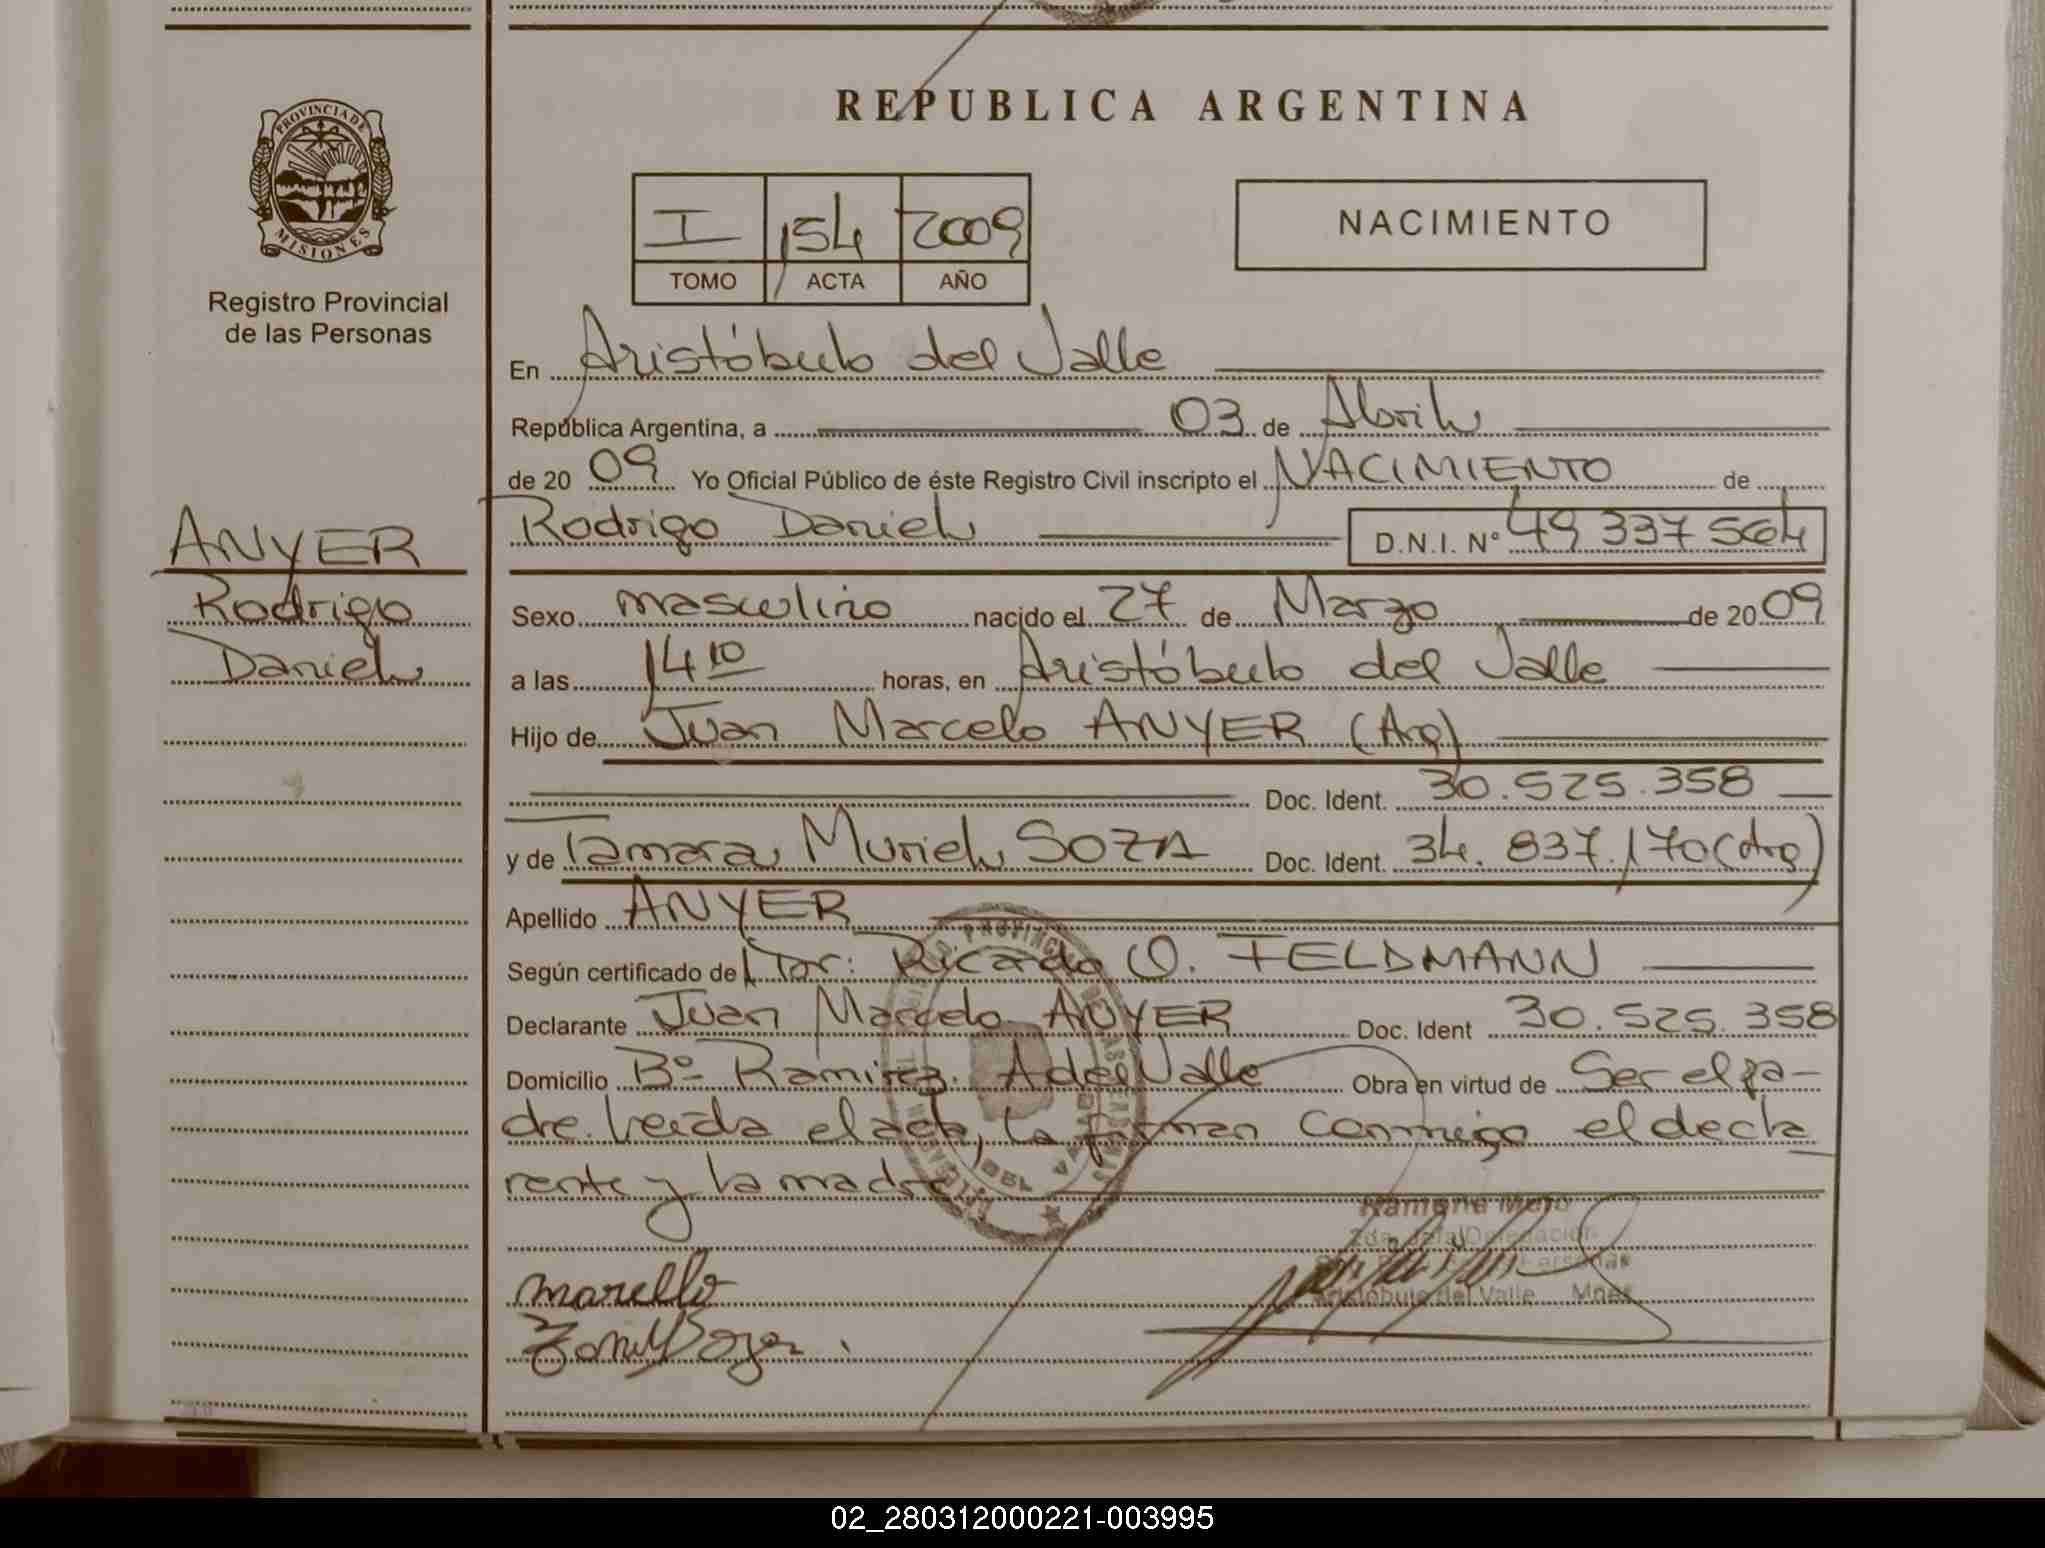 REPUBLICA ARGENTINA
PROVINCIA DE
MISIONES
Registro Provincial
de las Personas
I 154 2009
TOMO ACTA AÑO
NACIMIENTO
En Aristóbulo del Valle
República Argentina, a 03 de Abril
de 20 09 Yo Oficial Público de éste Registro Civil inscripto el NACIMIENTO de
Rodrigo Daniel D.N.I. N° 49 337 564
ANYER
Rodrigo
Daniel
Sexo masculino nacido el 27 de Marzo de 20 09
a las 14 10 horas, en Aristóbulo del Valle
Hijo de Juan Marcelo ANYER (Arg)
Doc. Ident. 30.525.358
y de Tamara Muriel SOZA Doc. Ident. 34.837.170 (Arg)
Apellido ANYER
Según certificado de Dr: Ricardo O. FELDMANN
Declarante Juan Marcelo ANYER Doc. Ident 30.525.358
Domicilio B° Ramirez. A del Valle Obra en virtud de Ser el pa-
dre. Leída el acta, la firman conmigo el decla
rante y la madre
Ramona
2da. Jefa Delegación
Personas
Aristóbulo del Valle Mnes
marcello
02_280312000221-003995